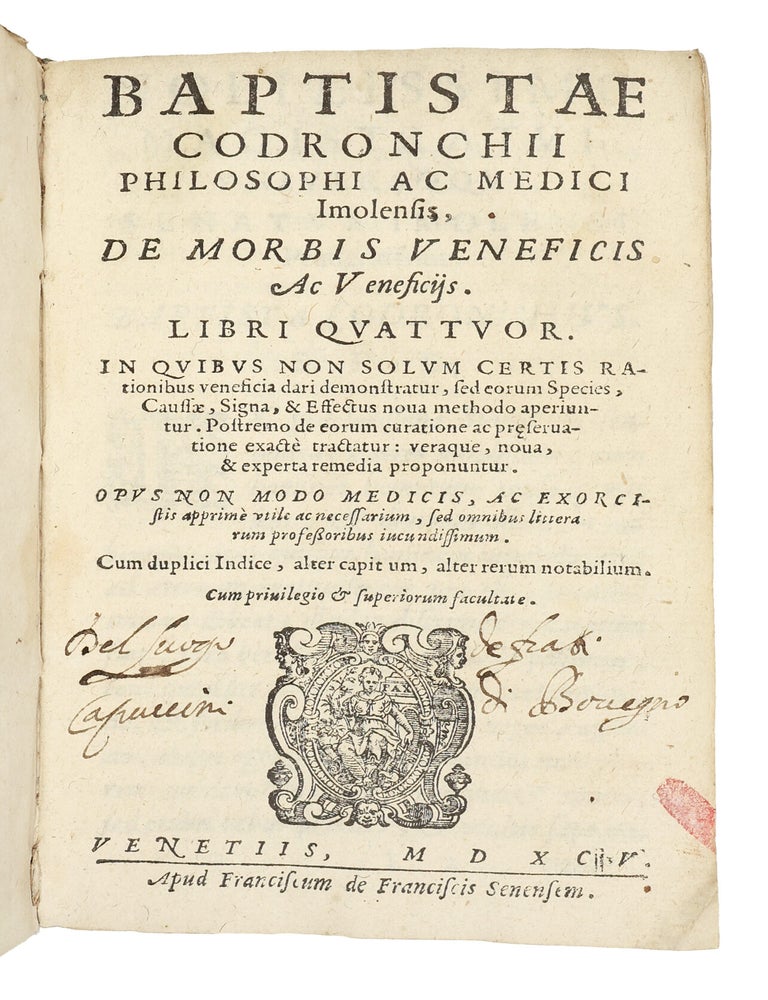 BAPTISTAE
CODRONCHII
PHILOSOPHI AC MEDICI
Imolensis,
DE MORBIS VENEFICIS
Ac Veneficijs.
LIBRI QVATTVOR.
IN QVIBVS NON SOLVM CERTIS RA-
tionibus veneficia dari demonſtratur, ſed eorum Species,
Cauſſæ, Signa, & Effectus noua methodo aperiun-
tur. Poſtremo de eorum curatione ac pręſerua-
tione exactè tractatur: veraque, noua,
& experta remedia proponuntur.
OPVS NON MODO MEDICIS, AC EXORCI-
ſtis apprimè vtile ac neceſſarium, ſed omnibus littera
rum profeßoribus iucundiſſimum.
Cum duplici Indice, alter capit um, alter rerum notabilium.
Cum priuilegio & ſuperiorum facultate.
Del de frati
Capuccini di Bouegno
PAX
VENETIIS, M D XC V.
Apud Franciſcum de Franciſcis Senenſem.